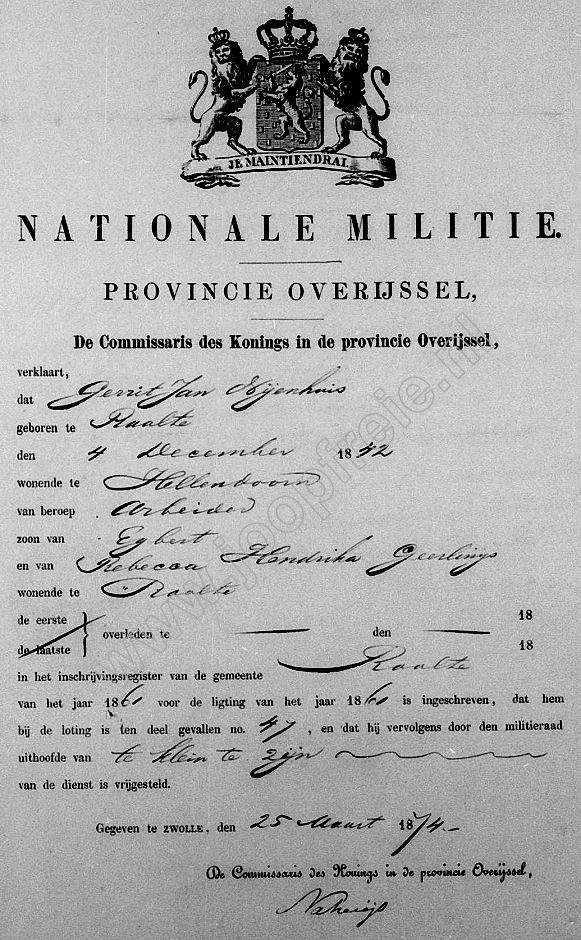 JE MAINTIENDRAI.
NATIONALE MILITIE.
PROVINCIE OVERIJSSEL,
De Commissaris des Konings in de provincie Overijssel,
verklaart,
dat Gerrit Jan Nijenhuis
geboren te Raalte
den 4 December 1842
wonende te Hellendoorn
van beroep Arbeider
zoon van Egbert
en van Rebecca Hendrika Geerlings
wonende te Raalte
de eerste 18
de laatste } overleden te den 18
in het inschrijvingsregister van de gemeente Raalte
van het jaar 1861 voor de ligting van het jaar 1861 is ingeschreven, dat hem
bij de loting is ten deel gevallen no. 47, en dat hij vervolgens door den militieraad
uithoofde van te klein te zijn
van de dienst is vrijgesteld.
Gegeven te ZWOLLE, den 25 Maart 1874.-
De Commissaris des Konings in de provincie Overijssel,
www.joopfreie.nl